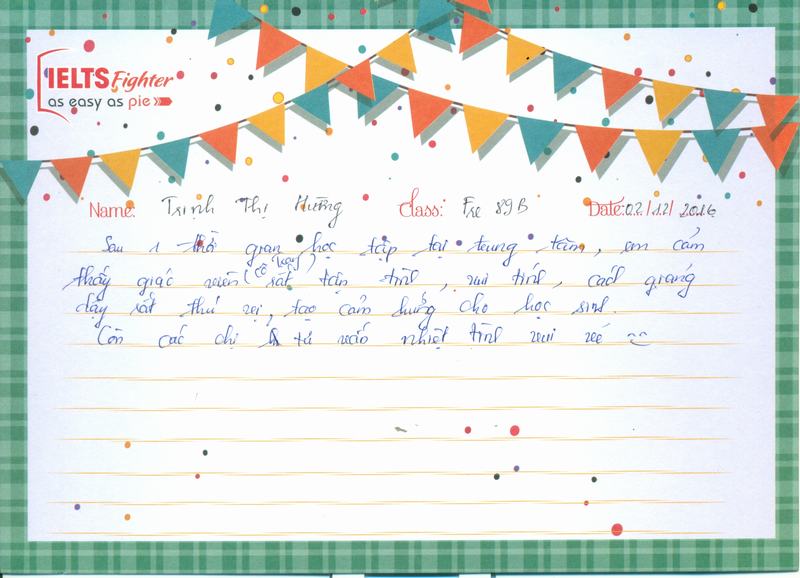 IELTS Fighter
as easy as pie
Name: Trịnh Thị Hường Class: Pre 89B Date: 02/12/2016
Sau 1 thời gian học tập tại trung tâm, em cảm
thấy giáo viên (cô) rất tận tình, vui tính, cách giảng
dạy rất thú vị, tạo cảm hứng cho học sinh.
Còn các chị tư vấn nhiệt tình vui vẻ